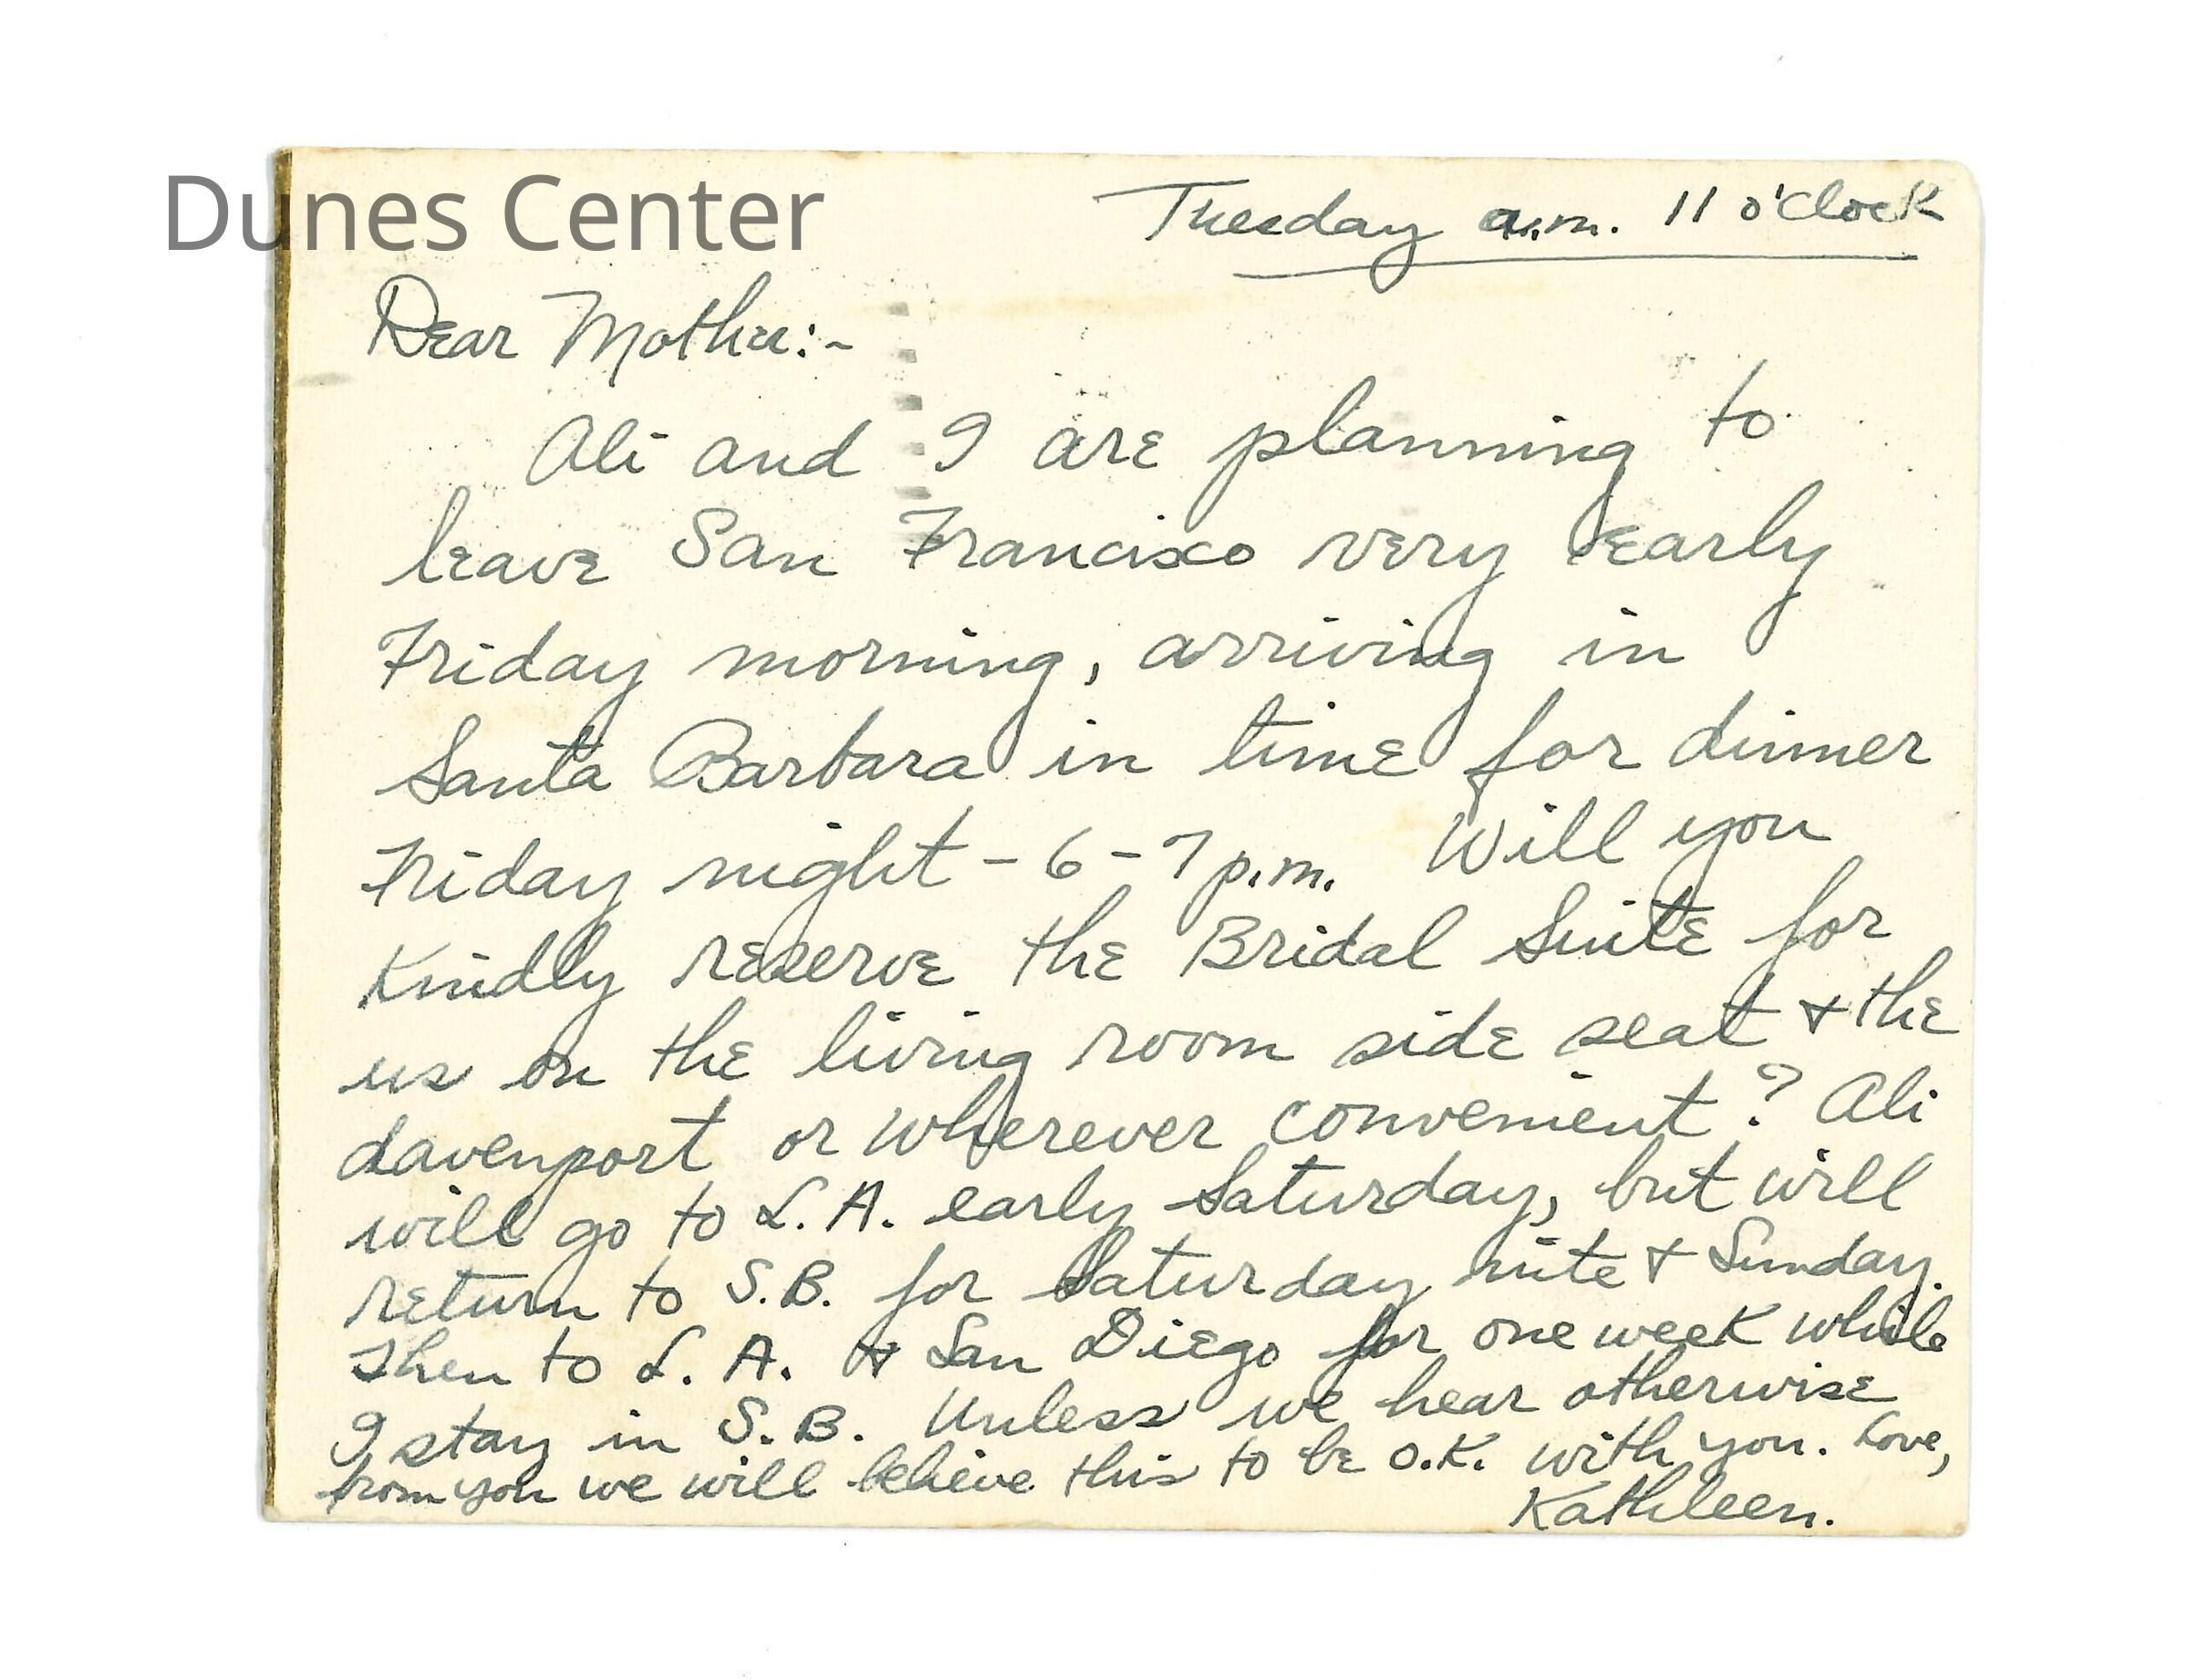 Dunes Center
Tuesday a.m. 11 o'clock
Dear Mother:-
Ali and I are planning to
leave San Francisco very early
Friday morning, arriving in
Santa Barbara in time for dinner
Friday night - 6-7 p.m. Will you
Kindly reserve the Bridal Suite for
us on the living room side seat + the
davenport or wherever convenient? Ali
will go to L.A. early Saturday, but will
return to S.B. for Saturday nite + Sunday.
Then to L.A. + San Diego for one week while
I stay in S.B. Unless we hear otherwise
from you we will believe this to be O.K. with you. Love,
Kathleen.